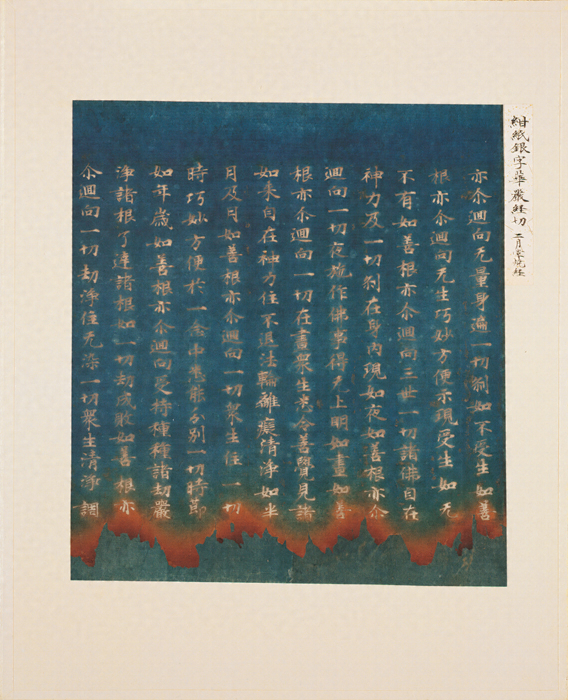 紺紙銀字華厳経切 二月堂焼経
亦尒迴向无量身遍一切剎如不受生如善
根亦尒迴向无生巧妙方便示現受生如无
不有如善根亦尒迴向三世一切諸佛自在
神力及一切剎在身內現如夜如善根亦尒
迴向一切夜施作佛事得无上明如晝如善
根亦尒迴向一切在晝衆生悉令善覺見諸
如来自在神力住不退法輪離癡清淨如半
月及月如善根亦尒迴向一切衆生住一切
時巧妙方便於一念中悉能分別一切時節
如年歲如善根亦尒迴向受持種種諸劫嚴
淨諸根了達諸根如一切劫成敗如善根亦
尒迴向一切劫淨住无染一切衆生清淨調